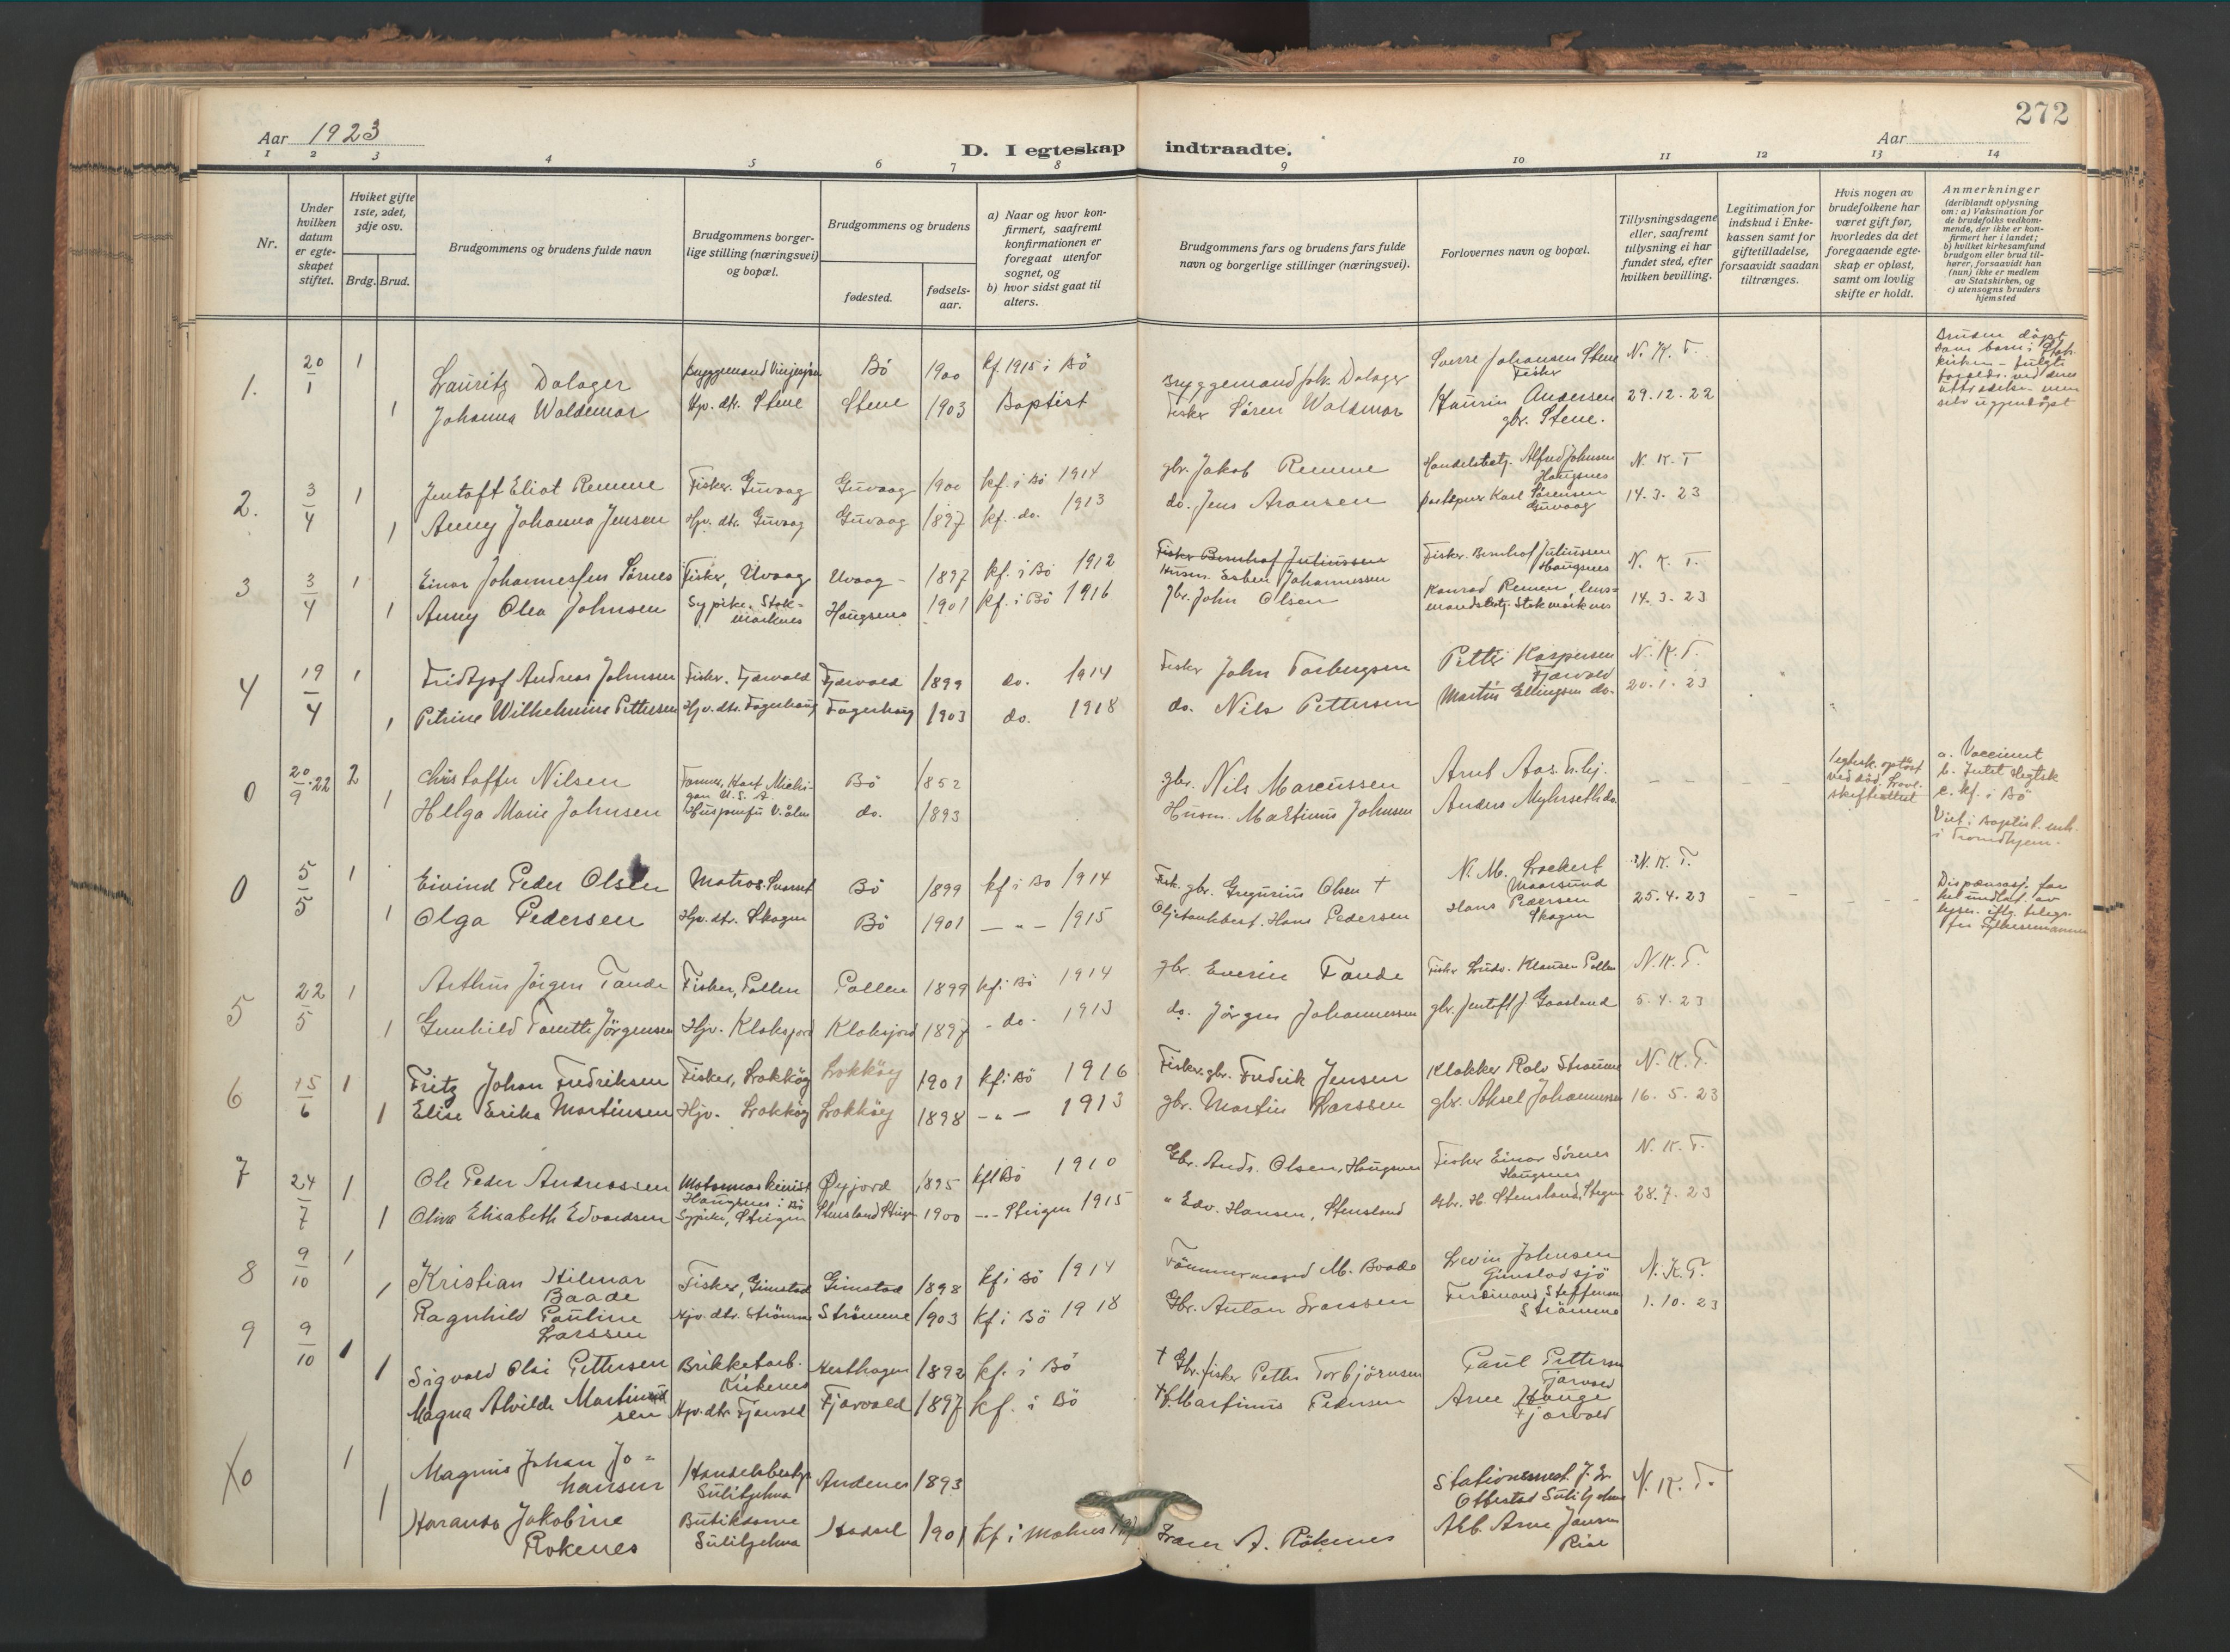 272
Aar 1923
D. I egteskap indtraadte.
Aar
1 2 3 4 5 6 7 8 9 10 11 12 13 14
Nr.
Under hvilken datum er egteskapet stiftet.
Hviket gifte 1ste, 2det, 3dje osv.
Brdg. Brud.
Brudgommens og brudens fulde navn
Brudgommens borgerlige stilling (næringsvei) og bopæl.
Brudgommens og brudens
fødested.
fødselsaar.
a) Naar og hvor konfirmert, saafremt konfirmationen er foregaat utenfor sognet, og
b) hvor sidst gaat til alters.
Brudgommens fars og brudens fars fulde navn og borgerlige stillinger (næringsvei).
Forlovernes navn og bopæl.
Tillysningsdagene eller, saafremt tillysning ei har fundet sted, efter hvilken bevilling.
Legitimation for indskud i Enkekassen samt for giftetilladelse, forsaavidt saadan tiltrænges.
Hvis nogen av brudefolkene har været gift før, hvorledes da det foregaaende egteskap er opløst, samt om lovlig skifte er holdt.
Anmerkninger (deriblandt oplysning om: a) Vaksination for de brudefolks vedkommende, der ikke er konfirmert her i landet; b) hvilket kirkesamfund brudgom eller brud tilhører, forsaavidt han (hun) ikke er medlem av Statskirken, og c) utensogns bruders hjemsted
1. 20/1 1 Lauritz Dalager Bryggemand Bö 1900 kf. 1915 i Bö Bryggemand Joh. Dalager Sverre Johansen Stene Fisker N. K. T.
1 Johanna Waldemar Hjv. dtr. Stene Stene 1903 Baptist Fisker Sören Waldemar Laurin Andersen gbr. Stene. 29.12.22
2. 3/4 1 Jentoft Eliot Remme Fisker. Guvaag Guvaag 1900 kf. i Bö 1914 gbr. Jakob Remme Handelsbetj. Alfred Johnsen Haugsnes N. K. T
1 Anny Johanna Jensen Hjv. dtr. Guvaag Guvaag 1897 kf. do. 1913 do. Jens Aronsen Karl Sörensen Guvaag 14.3.23
3 3/4 1 Einar Johannessen Sörnes Fisker, Uvaag Uvaag 1897 kf. i Bö 1912 Fisker Bernhof Juliussen Husm. Esben Johannessen Fisker. Bernhof Juliussen Haugsnes N. K. T.
1 Anny Olea Johnsen Sypike. Stokmarknes Haugsnes 1901 kf. i Bö 1916 gbr. John Olsen Konrad Remen, lensmandsbetj. Stokmarknes 14.3.23
4 19/4 1 Fridtjof Andreas Johnsen Fisker. Fjærvold Fjærvold 1899 do. 1914 Fisker John Torbergsen Petter Kaspersen Fjærvold N. K. T.
1 Petrine Wilhelmine Pettersen Hjv. dtr. Fagerhaug Fagerhaug 1903 do. 1918 do. Nils Pettersen Martin Ellingsen do. 20.1.23
0 20/9.22 2 Christoffer Nilsen Farmer, Hart Michigan U. S. A. Bö 1852 gbr. Nils Marcussen Arnt Aas. Tr.hj. Egtesk. opløst ved död. skifteattest a. Vaccinert
1 Helga Marie Johnsen do. 1893 Husm. Martinus Johnsen Anders Myhrseth do. c. kf. i Bö
Viet i Baptist. mh. i Trondhjem.
0 5/5 1 Eivind Peder Olsen Matros. Bö 1899 kf i Bö 1914 Fisk. gbr. Gregorius Olsen † N. M. Lockert N. K. T.
1 Olga Pedersen Hjv. dtr. Skagen Bö 1901 — " — 1915 Hans Pedersen Hans Pedersen Skagen 25.4.23
5 22/5 1 Arthur Jörgen Tande Fisker, Pollen Pollen 1899 kf. i Bö 1914 gbr. Tande Fisker Ludv. Klausen Pollen N. K. T.
1 Gunhild Tomette Jörgensen Hjv. Klaksjord Klaksjord 1897 - do. 1913 do. Jörgen Johannessen gbr. Jentoft J. Gaasland 5.4.23
6 15/6 1 Fritz Johan Fredriksen Fisker, Lokköy Lokköy 1901 kf i Bö 1916 Fisker. gbr. Fredrik Jensen Klokker Rolv Straume N. K. T.
1 Elise Erika Martinsen Hjv. Lokköy Lokköy 1898 — " — 1913 gbr. Martin Larssen gbr. Aksel Johannessen 16.5.23
7 24/7 1 Ole Peder Andreassen Motormaskinist Haugsnes i Bö Øyjord 1895 kf i Bö 1910 Gbr. Andr. Olsen, Haugsnes Fisker Einar Sörnes Haugsnes N. K. T.
1 Oliva Elisabeth Edvardsen Sypike, Steigen Stensland Steigen 1900 — " — Steigen 1915 " Edv. Hansen, Stensland Gbr. H. Stensland, Steigen 28.7.23
8 9/10 1 Kristian Hilmar Baade Fisker, Gimstad Gimstad 1898 kf i Bö 1914 Tömmermand M. Baade Levin Johnsen Gimstadsjö N. K. T.
1 Ragnhild Pauline Larssen Hjv. dtr. Strömme Strömme 1903 kf i Bö 1918 Gbr. Anton Larssen Ferdinand Steffensen Strömme 1.10.23
9 9/10 1 Sigvald Olai Pettersen Brikketarb. Kirkenes Hesthagen 1892 kf. i Bö † Gbr. fisker Petter Torbjörnsen Paul Pettersen Fjærvold
1 Magna Alvilde Martinussen Hjv. dtr Fjærvold Fjærvold 1897 kf. i Bö Martinus Pedersen Arne Hauge Fjærvold
10 1 Magnus Johan Johansen Handelsbestyr Sulitjelma Andenes 1893 Stationsmest. Otterstad Sulitjelma N. K. T.
1 Haranda Jakobine Rokenes Butikdame Sulitjelma Hadsel 1901 kf i A. Rökenes Arb. Arne Jansen